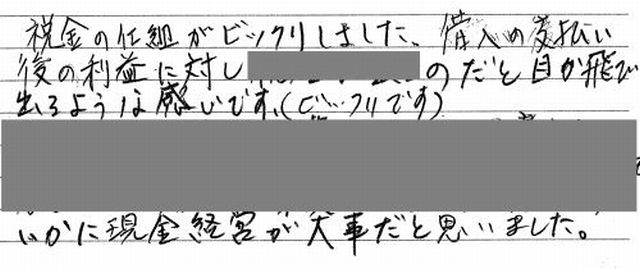 税金の仕組がビックリしました。借入の支払い
後の利益に対し のだと目が飛び
出るような感じです、(ビックリです)
いかに現金経営が大事だと思いました。